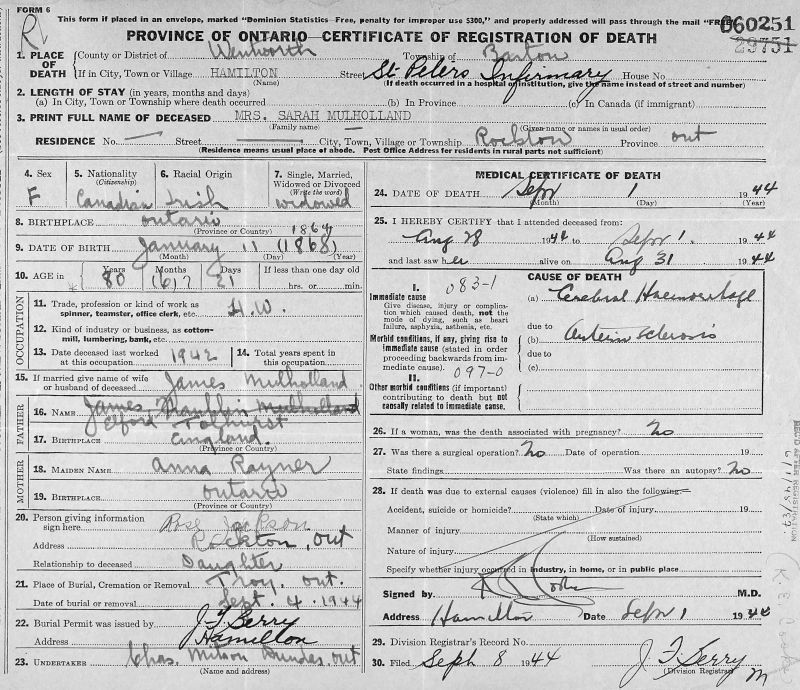 FORM 6
This form if placed in an envelope, marked "Dominion Statistics—Free, penalty for improper use $300," and properly addressed will pass through the mail "FREE"
060251
29751
PROVINCE OF ONTARIO—CERTIFICATE OF REGISTRATION OF DEATH
1. PLACE OF DEATH
County or District of Wentworth Township of Barton
If in City, Town or Village HAMILTON Street St. Peters Infirmary House No.
(Name) (If death occurred in a hospital or institution, give the name instead of street and number)
2. LENGTH OF STAY (in years, months and days)
(a) In City, Town or Township where death occurred (b) In Province (c) In Canada (if immigrant)
3. PRINT FULL NAME OF DECEASED MRS. SARAH MULHOLLAND
(Family name) (Given name or names in usual order)
RESIDENCE No. Street City, Town, Village or Township Rockton Province Ont
(Residence means usual place of abode. Post Office Address for residents in rural parts not sufficient)
4. Sex F
5. Nationality (Citizenship) Canadian
6. Racial Origin Irish
7. Single, Married, Widowed or Divorced (Write the word) widowed
8. BIRTHPLACE Ontario
(Province or Country) 1864
9. DATE OF BIRTH January 11 (1868)
(Month) (Day) (Year)
10. AGE in Years Months Days If less than one day old
80 21 hrs. or min.
OCCUPATION
11. Trade, profession or kind of work as spinner, teamster, office clerk, etc. H.W.
12. Kind of industry or business, as cotton-mill, lumbering, bank, etc.
13. Date deceased last worked at this occupation 1942
14. Total years spent in this occupation
15. If married give name of wife or husband of deceased James Mulholland
FATHER
16. NAME James Franklin Mulholland
Elford Tolhurst
17. BIRTHPLACE England.
(Province or Country)
MOTHER
18. MAIDEN NAME Anna Rayner
19. BIRTHPLACE Ontario
(Province or Country)
20. Person giving information sign here Rose Jackson
Address Rockton, Ont
Relationship to deceased Daughter
21. Place of Burial, Cremation or Removal Troy, Ont.
Date of burial or removal Sept. 4. 1944
22. Burial Permit was issued by J. F. Berry
Address Hamilton
23. UNDERTAKER Chas. Mitson Dundas, Ont
(Name and address)
MEDICAL CERTIFICATE OF DEATH
24. DATE OF DEATH Sept 1 1944
(Month) (Day) (Year)
25. I HEREBY CERTIFY that I attended deceased from:
Aug 28 1944 to Sept 1. 1944
and last saw her alive on Aug 31 1944
CAUSE OF DEATH
I. 083-1
Immediate cause
Give disease, injury or complication which caused death, not the mode of dying, such as heart failure, asphyxia, asthenia, etc.
(a) Cerebral Haemorrhage
due to
Morbid conditions, if any, giving rise to immediate cause (stated in order proceeding backwards from immediate cause). 097-0
(b) Arterio Sclerosis
due to
(c)
II.
Other morbid conditions (if important) contributing to death but not causally related to immediate cause.
26. If a woman, was the death associated with pregnancy? No
27. Was there a surgical operation? No Date of operation 19
State findings Was there an autopsy? No
28. If death was due to external causes (violence) fill in also the following:—
Accident, suicide or homicide? Date of injury 19
(State which)
Manner of injury
(How sustained)
Nature of injury
Specify whether injury occurred in industry, in home, or in public place
Signed by M.D.
Address Hamilton Date Sept 1 1944
29. Division Registrar's Record No.
30. Filed Sept 8 1944 J. F. Berry
(Division Registrar)
REC'D AFTER REGISTRATION